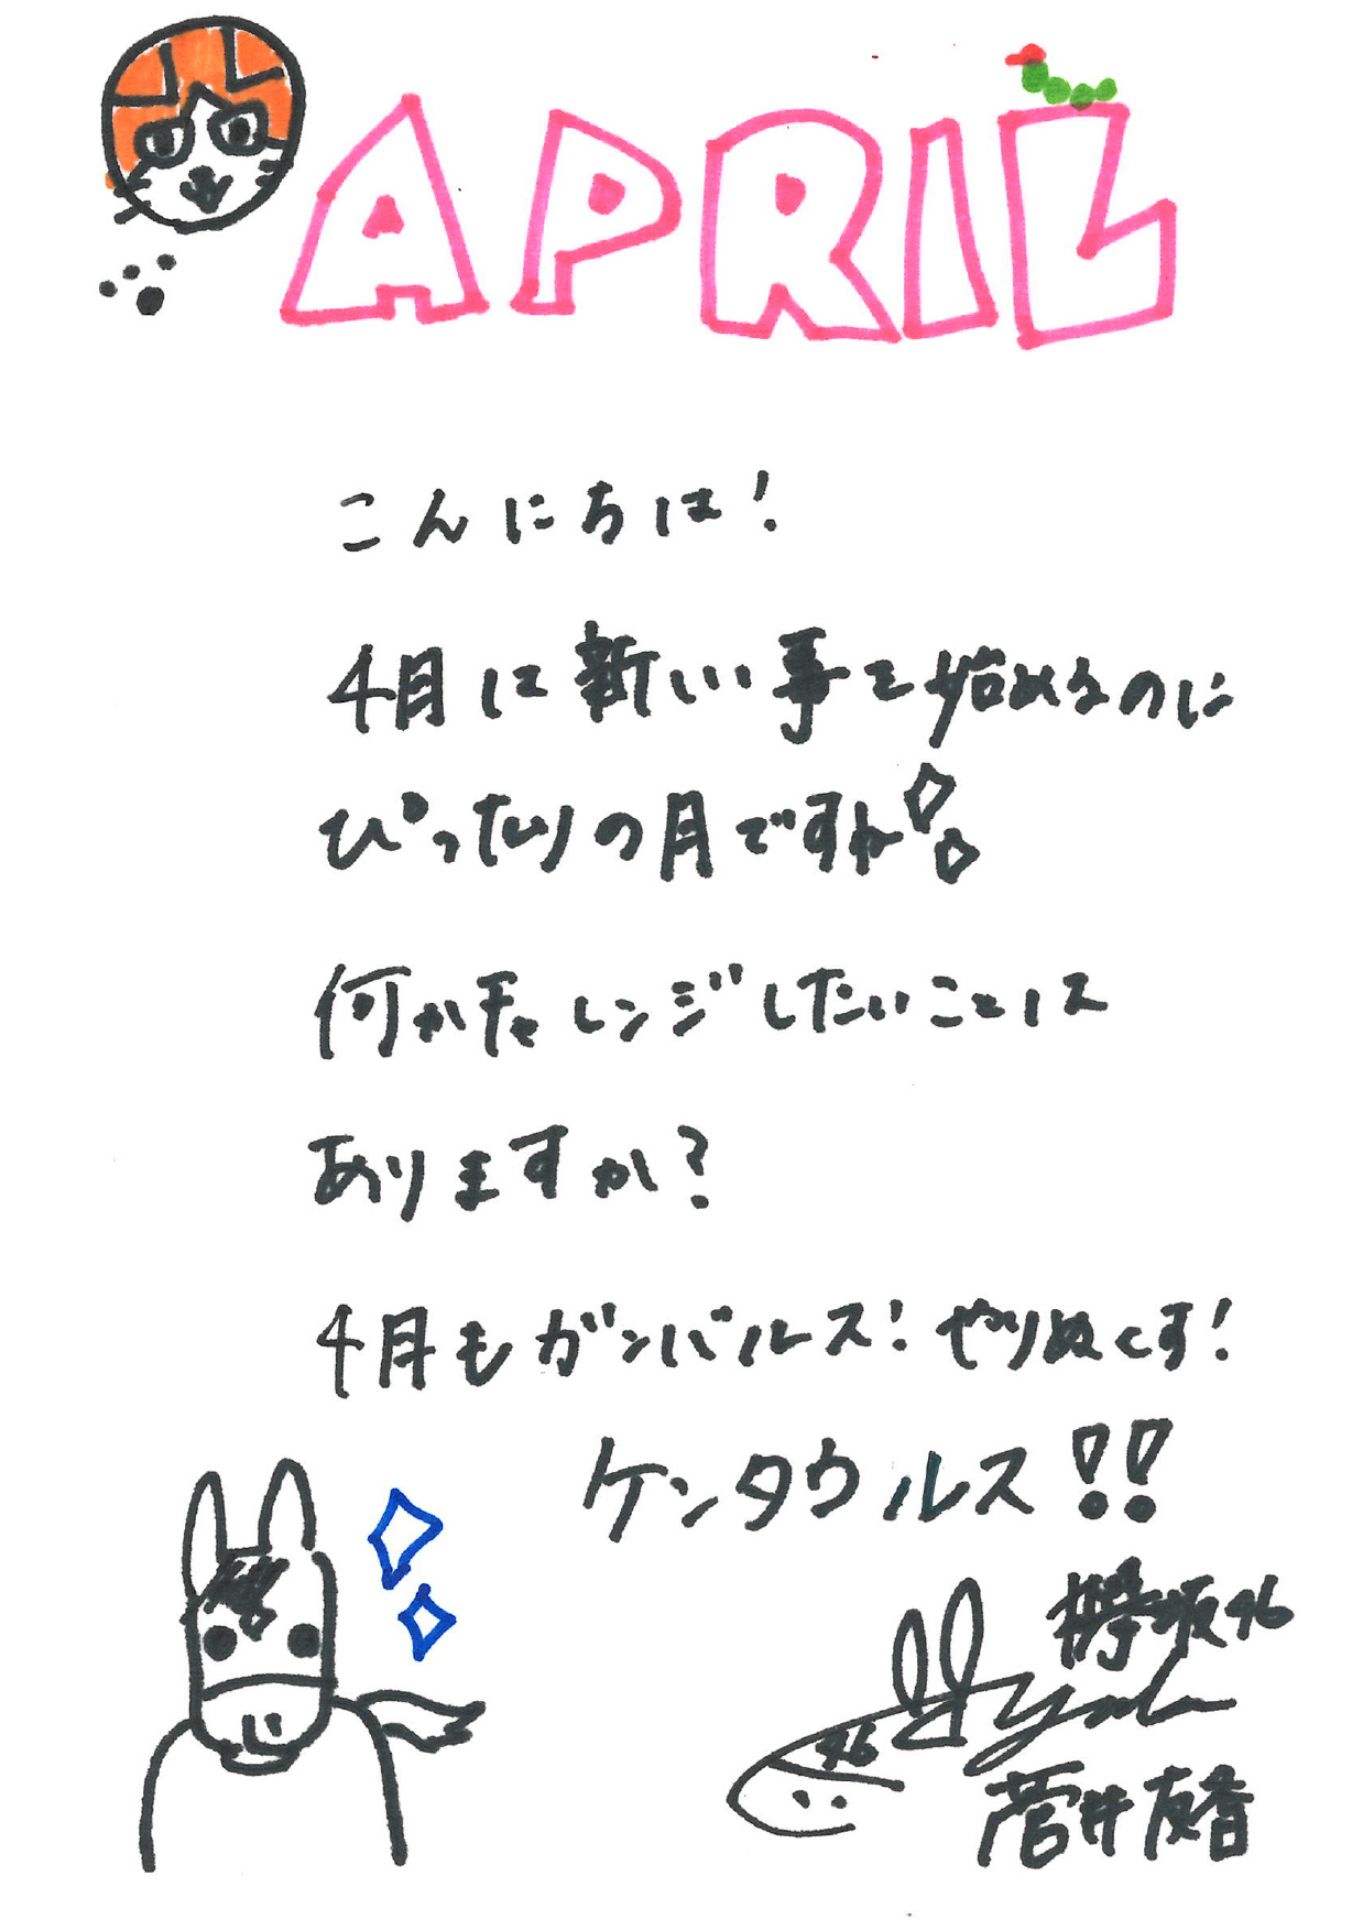 APRIL
こんにちは！
4月は新しい事を始めるのに
ぴったりの月ですね
何かチャレンジしたいことは
ありますか？
4月もガンバルス！やりぬくす！
ケンタウルス！！
欅坂46
46
菅井友香